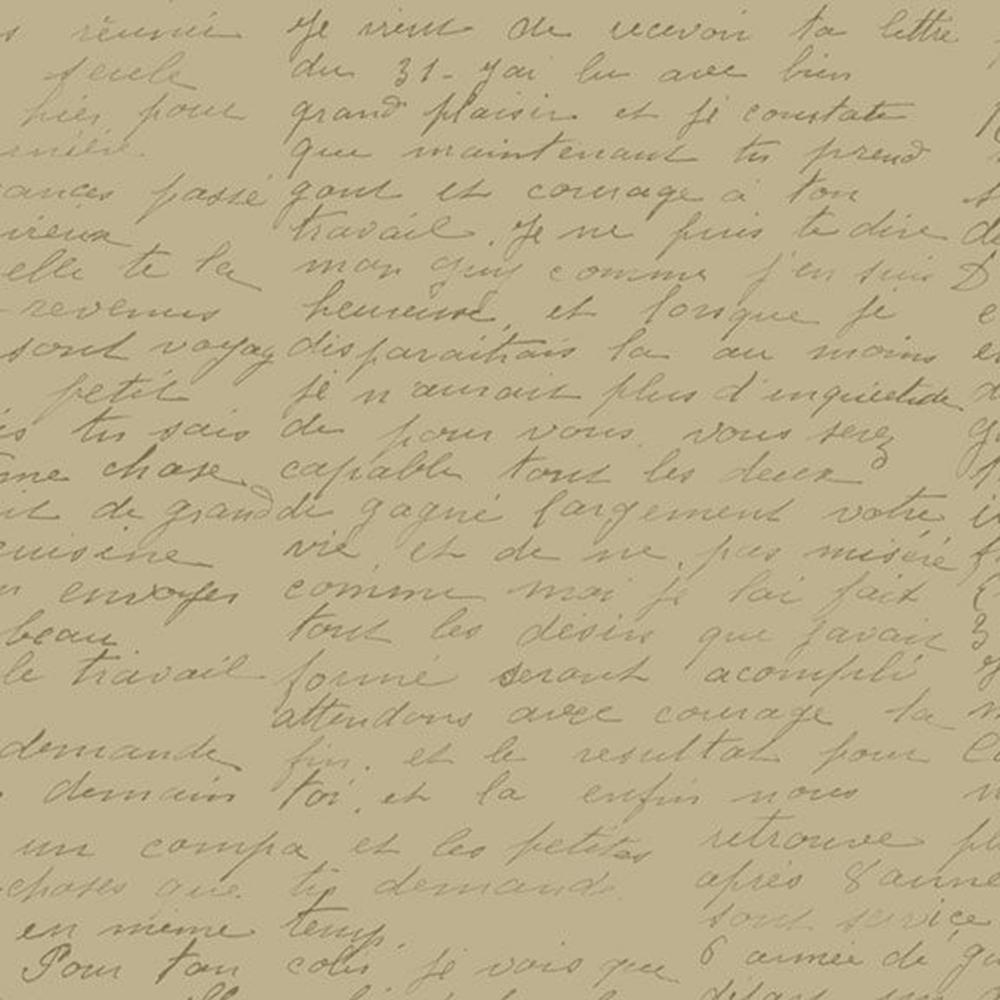 s réunit
seule
hier pour
ances passé
elle te la
revenus
sont voyag
petit
is tu sais
me chose
it de grand
cuisine
envoyer
beau
le travail
demande
demain
un compa et les petites
choses que tu demande
en même temp
Pour ton colis je vois que
Je vient de recevoir ta lettre
du 31 - Jai lu avec bien
grand plaisir et je constate
que maintenant tu prend
gout et courage à ton
travail. Je ne puis te dire
mon guy comme j'en suis
heureuse, et lorsque je
disparaitrais la au moins
je n'aurait plus d'inquietude
de pour vous. vous serez
capable tout les deux
de gagné largement votre
vie et de ne pas miséré
comme moi je lai fait
tout les désirs que javait
formé seront acompli
attendons avec courage la
fin. et le resultat pour
toi. et la enfin nous
retrouve
après 8 anne
sont service
6 année de